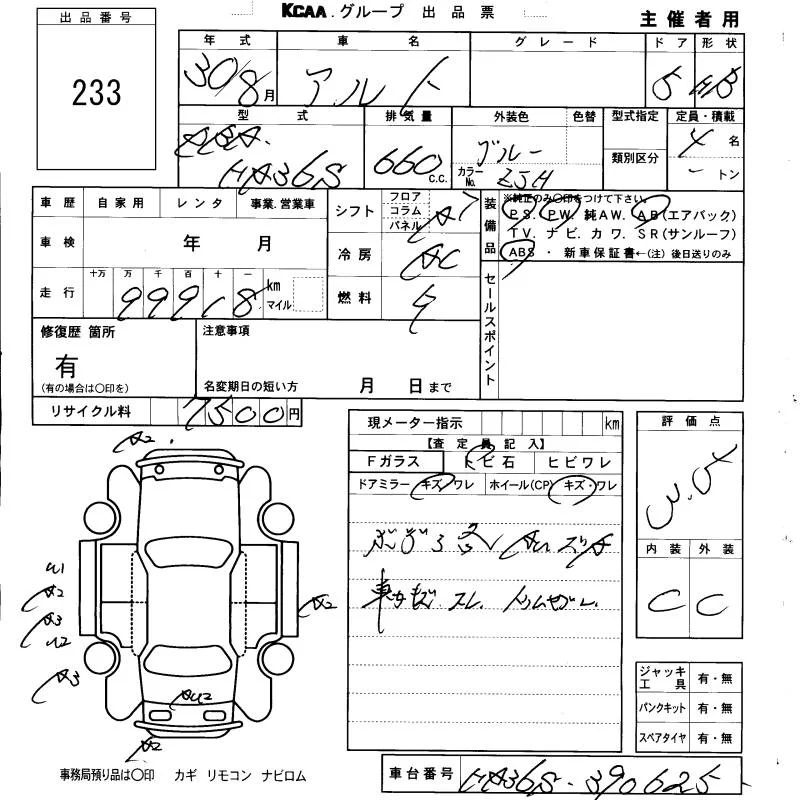 KCAA.グループ 出品票
主催者用
出品番号
233
年式 車名 グレード ドア 形状
30/8月 アルト 5 HB
型式 排気量 外装色 色替 型式指定 定員・積載
HA36S 660c.c. ブルー カラーNo. ZJH 類別区分 4名
ートン
車歴 自家用 レンタ 事業.営業車
車検 年 月
十万 万 千 百 十 一
走行 99918 km マイル
シフト フロア コラム パネル
冷房 AC
燃料
装備品 ※純正のみ○印をつけて下さい。
PS. PW. 純AW. AB(エアバック)
TV. ナビ. カワ. SR(サンルーフ)
ABS ・ 新車保証書←(注) 後日送りのみ
セールスポイント
修復歴 箇所
有
(有の場合は○印を)
注意事項
名変期日の短い方 月 日まで
リサイクル料 7500円
現メーター指示 km
【査定員記入】
Fガラス トビ石 ヒビワレ
ドアミラー キズ・ワレ ホイール(CP) キズ・ワレ
評価点
内装 外装
C C
A2
U1
A2
A3
U2
A3
A2
AU2
A2
ジャッキ工具 有・無
パンクキット 有・無
スペアタイヤ 有・無
事務局預り品は○印 カギ リモコン ナビロム
車台番号 HA36S-390625